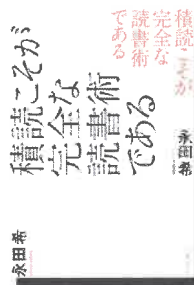 積読こそが
完全な
読書術
である
永田希
積読こそが
完全な
読書術
である
永田 希